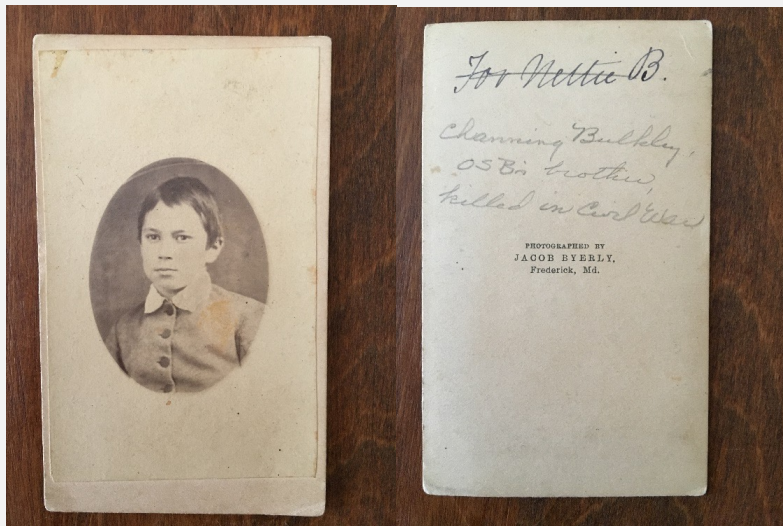 For Nettie B.
Channing Bulkley,
OSB's brother,
killed in Civil War
PHOTOGRAPHED BY
JACOB BYERLY,
Frederick, Md.